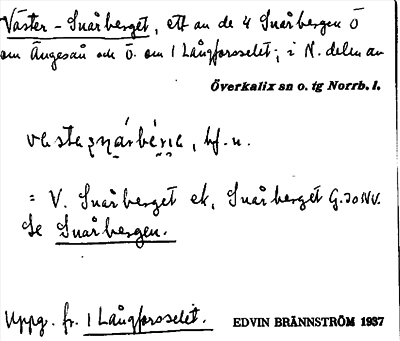 Väster-Snårberget, ett av de 4 Snårbergen Ö
om Ängesån och Ö. om 1 Långforsselet; i N. delen av
Överkalix sn o. tg Norrb. l.
bf. n.
= V. Snårberget ek, Snårberget G. 30 NV.
Se Snårbergen.
Uppg. fr. 1 Långforsselet. EDVIN BRÄNNSTRÖM 1937